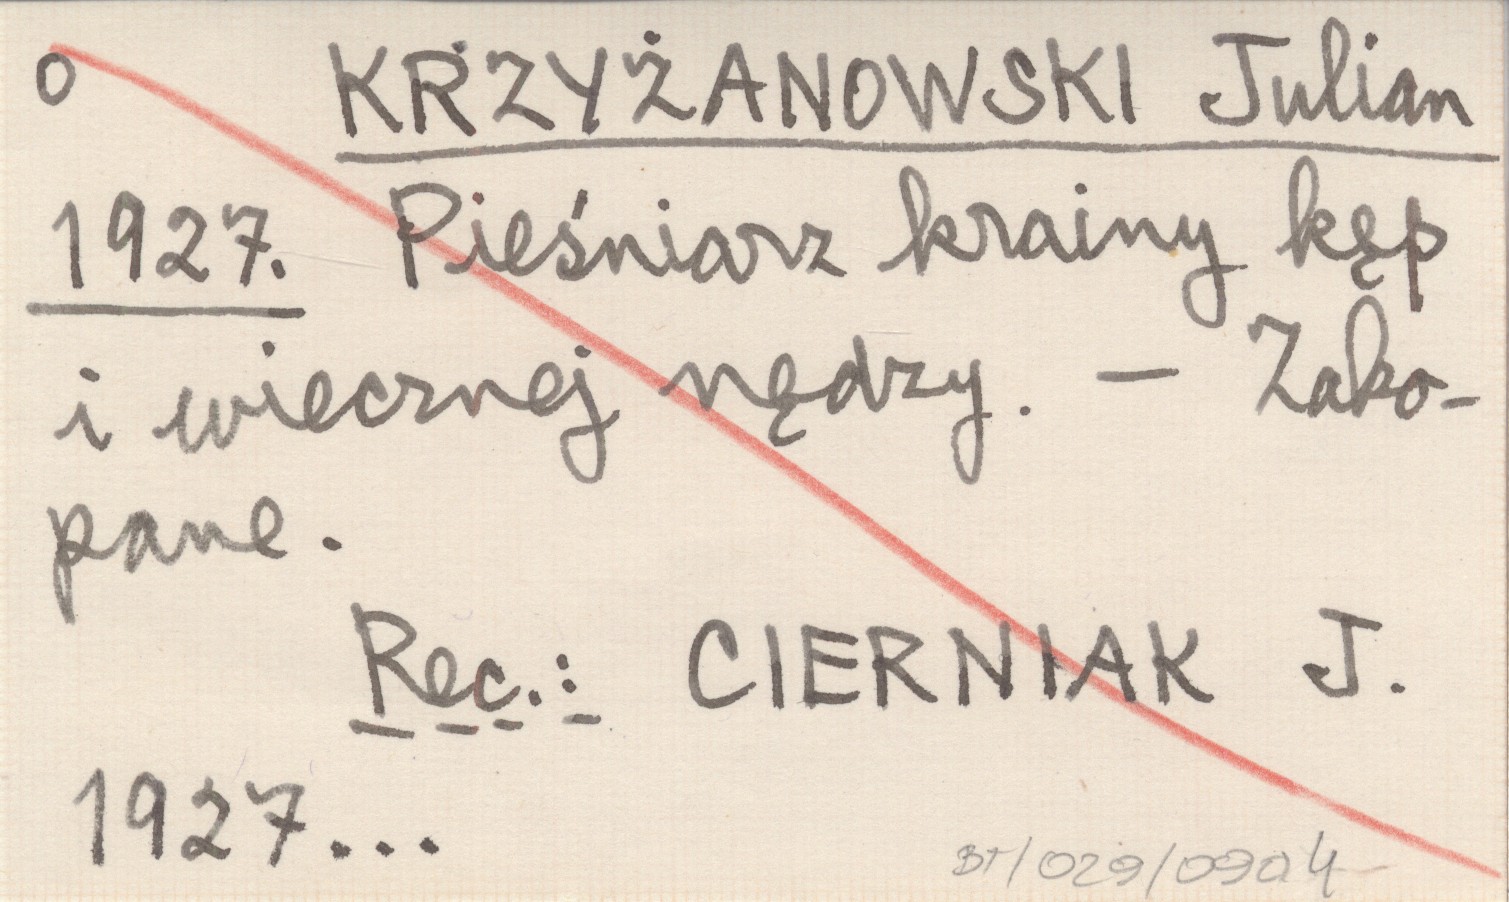 o KRZYŻANOWSKI Julian
1927. Pieśniarz krainy kęp
i wiecznej nędzy. — Zako-
pane.
Rec.: CIERNIAK J.
1927...
BT/029/0904